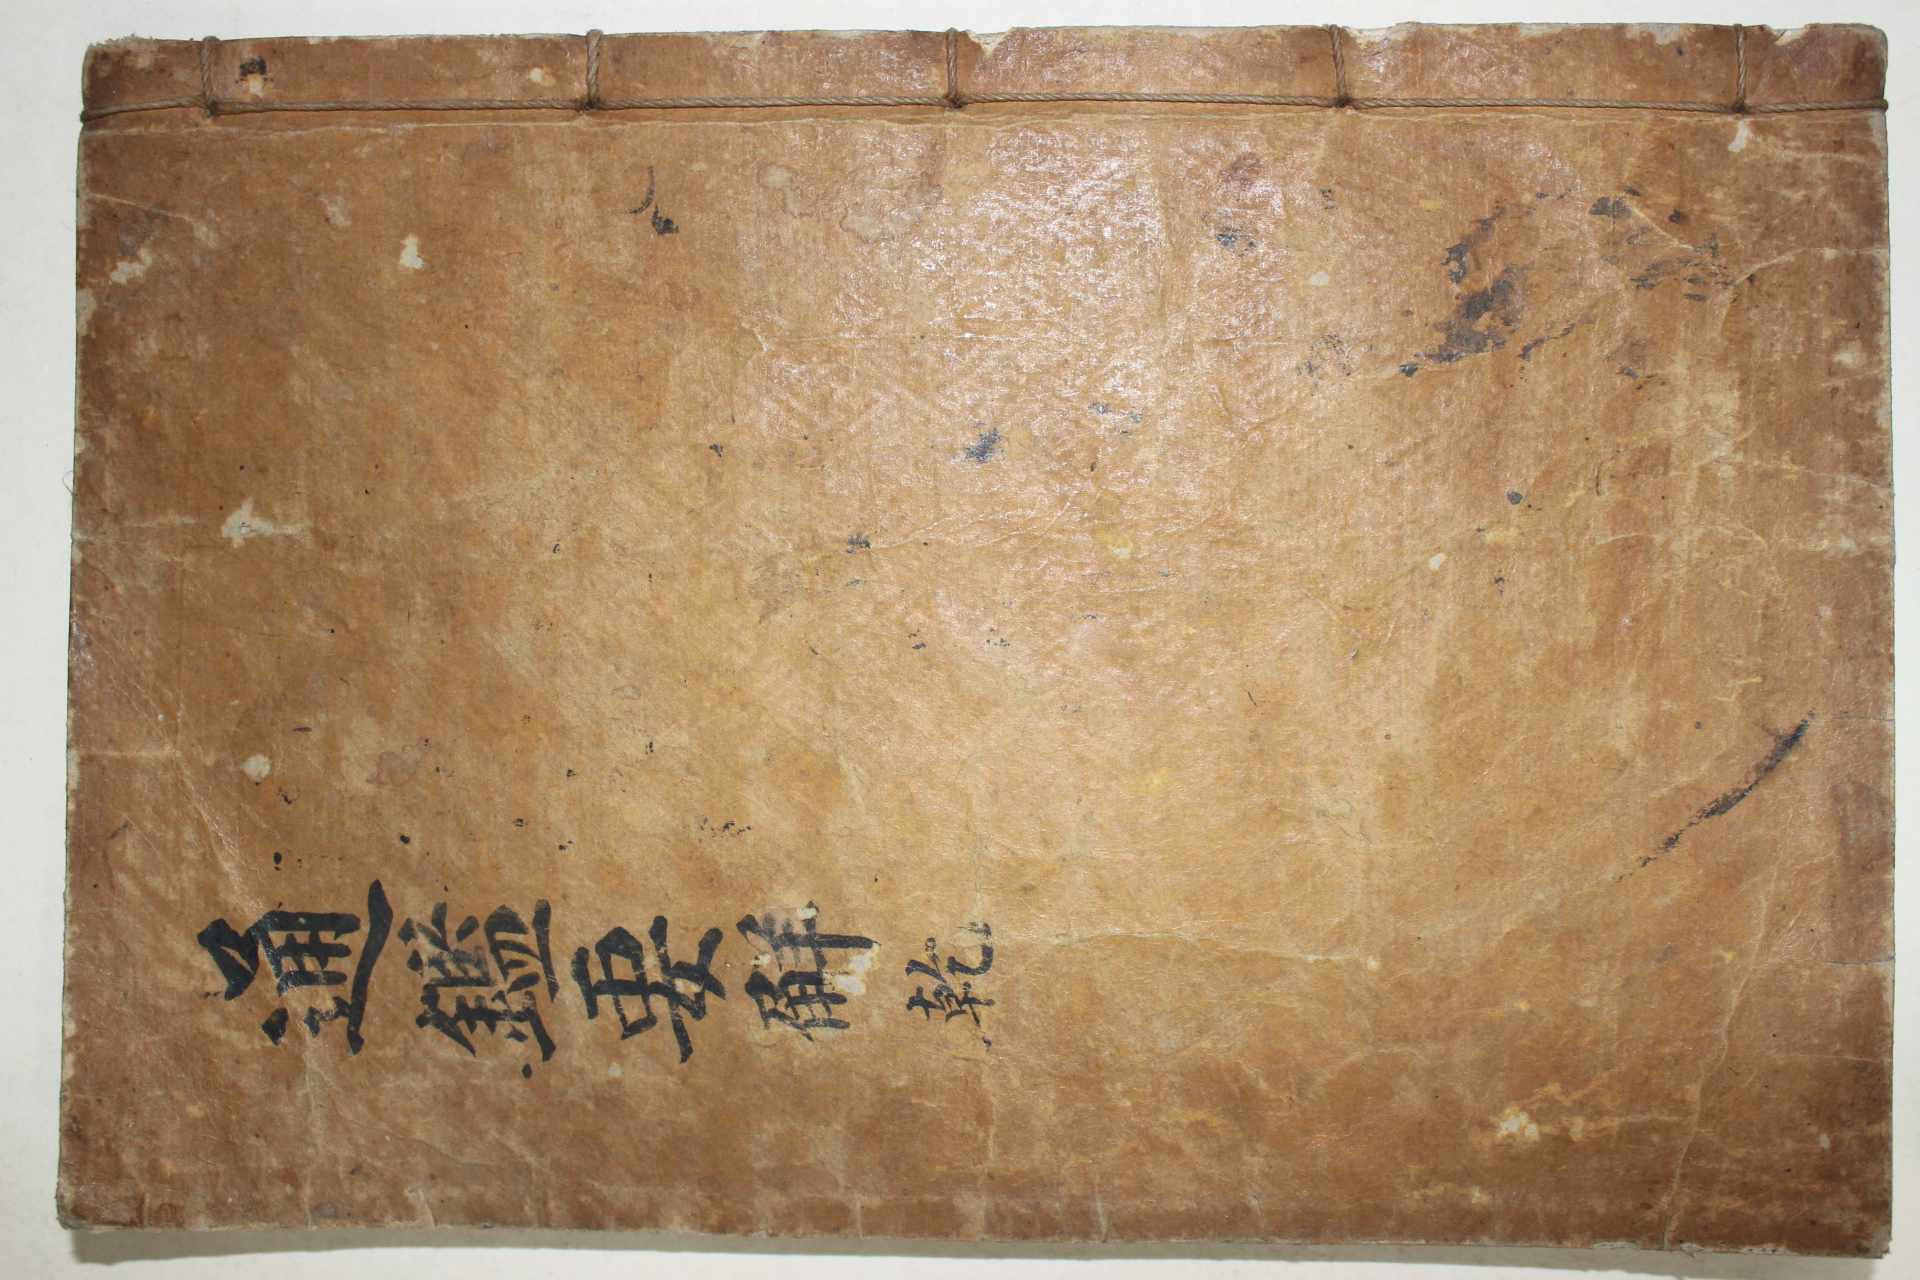 通鑑要解 乾